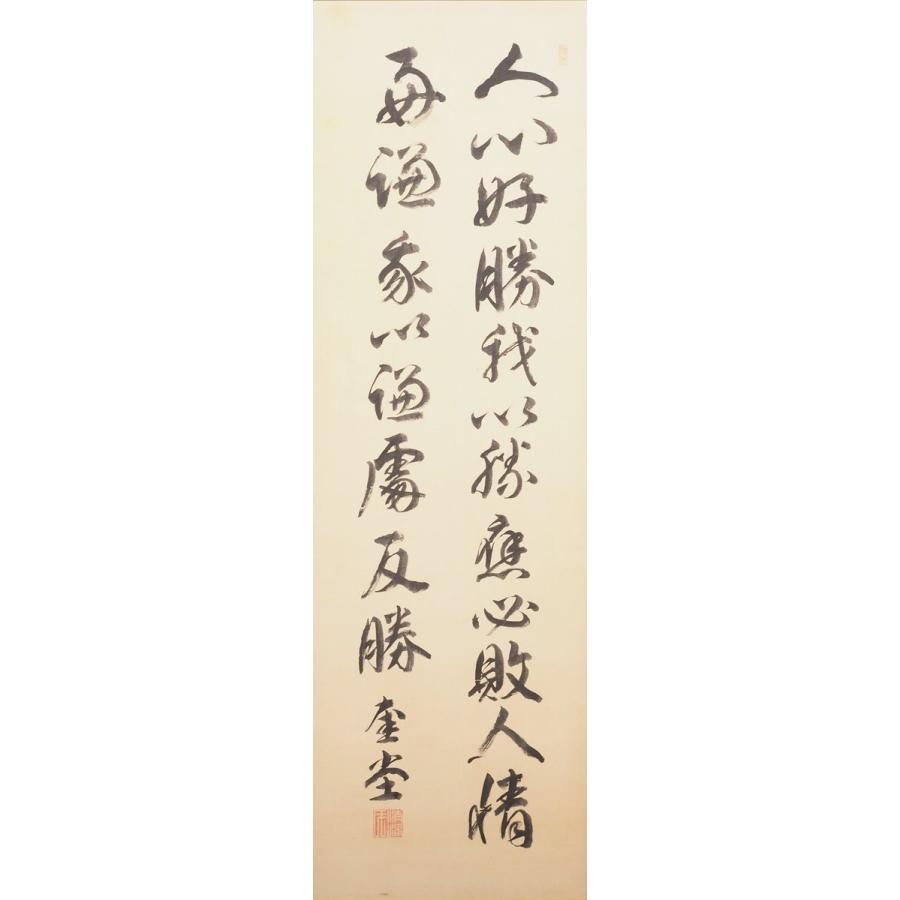 人心好勝我以勝應必敗人情
再謙我以謙處反勝
奎堂